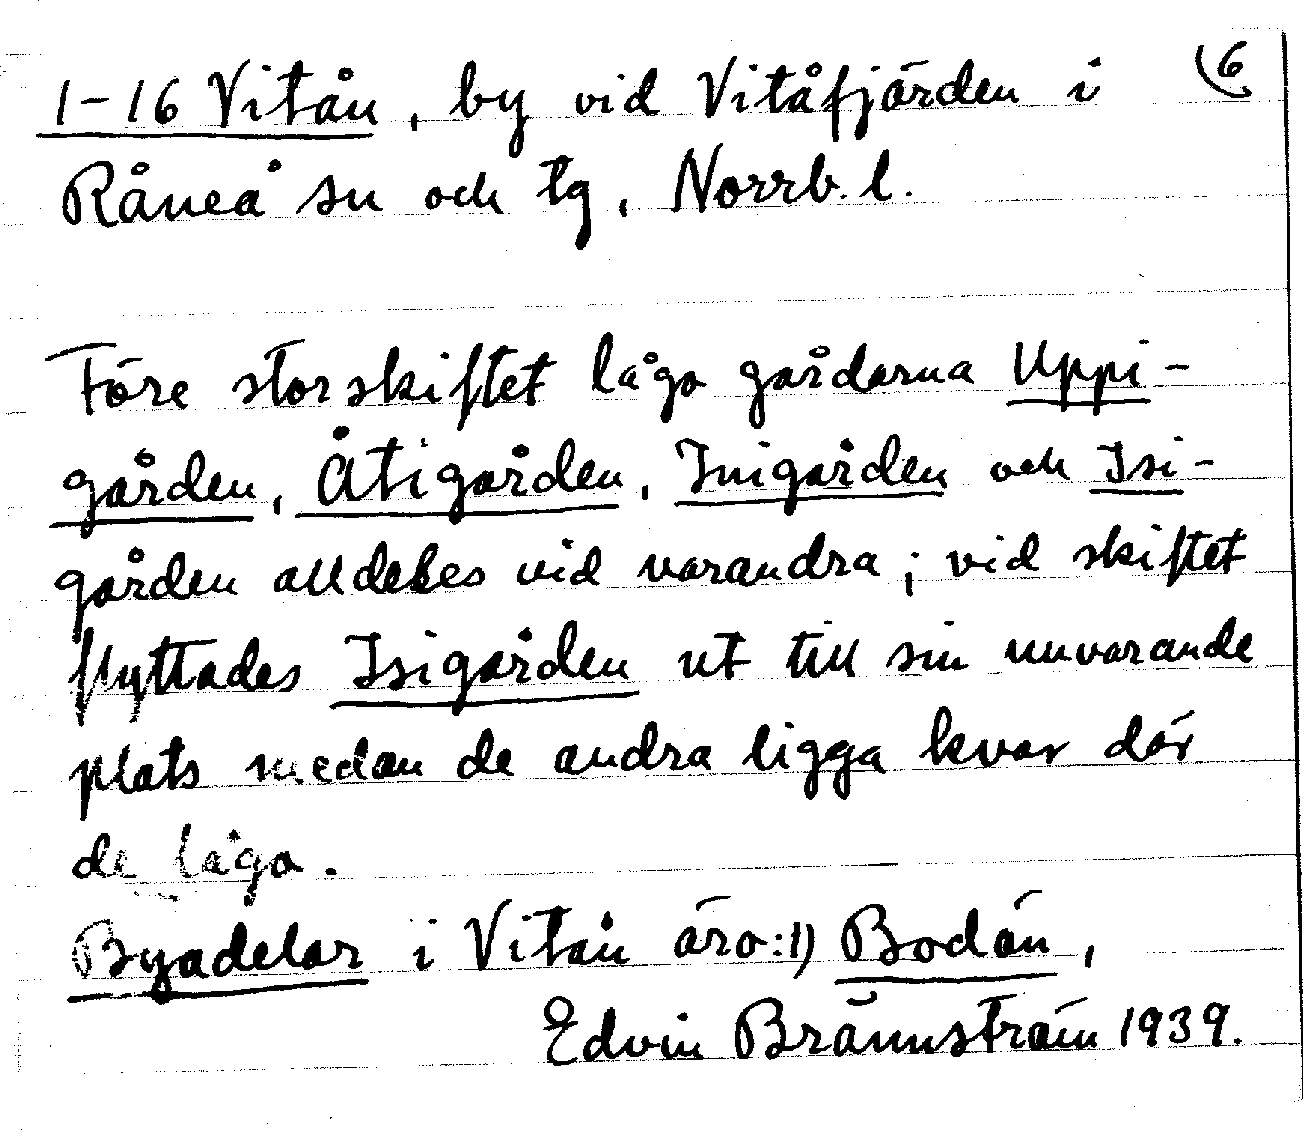 1-16 Vitån, by vid Vitåfjärden i (6
Råneå sn och tg, Norrb. l.
Före storskiftet låga gårdarna Uppi-
gården, Åtigården, Inigården och Isi-
gården alldeles vid varandra; vid skiftet
flyttades Isigården ut till sin nuvarande
plats medan de andra ligga kvar där
de låga.
Byadelar i Vitån äro: 1) Bodän,
Edvin Brännström 1939.